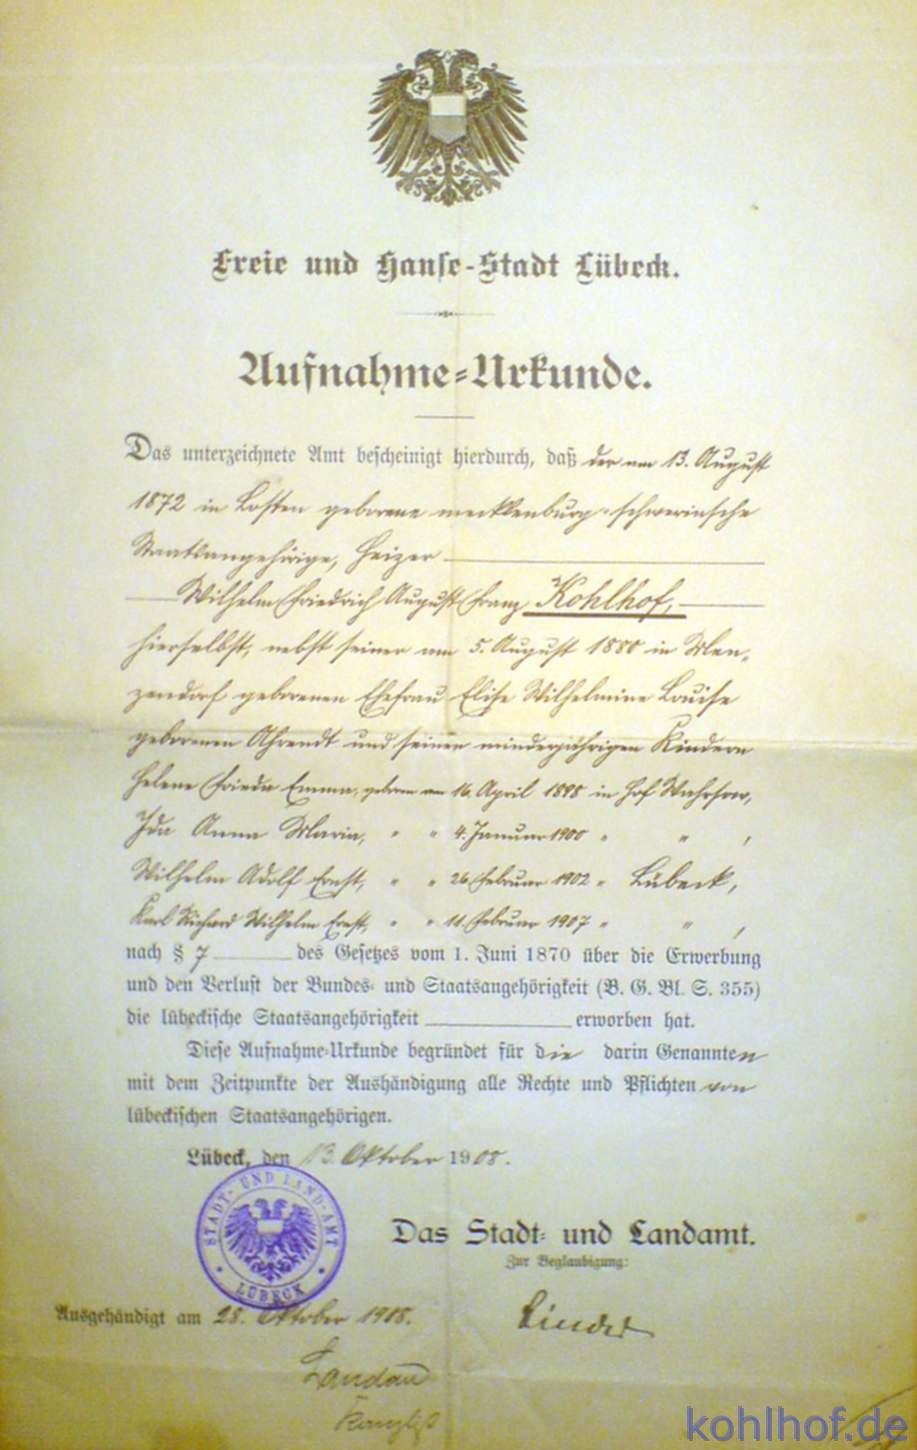 Freie und Hanse-Stadt Lübeck.
Aufnahme-Urkunde.
Das unterzeichnete Amt bescheinigt hierdurch, daß der am 13. August
1872 in Losten geborene mecklenburg-schwerinsche
Staatsangehörige, Heizer
Wilhelm Friedrich August Franz Kohlhof,
hierselbst, nebst seiner am 5. August 1880 in Men-
zendorf geborenen Ehefrau Elise Wilhelmine Louise
geborenen Ahrendt und seinen minderjährigen Kindern
Helene Frieda Emma, geboren am 16. April 1898 in Hof Wahrsow,
Ida Anna Maria, " " 4. Januar 1900 " " ,
Wilhelm Adolf Ernst, " " 26. Februar 1902 " Lübeck,
Karl Richard Wilhelm Ernst, " " 11. Februar 1907 " " ,
nach § 7 des Gesetzes vom 1. Juni 1870 über die Erwerbung
und den Verlust der Bundes- und Staatsangehörigkeit (B. G. Bl. S. 355)
die lübeckische Staatsangehörigkeit erworben hat.
Diese Aufnahme-Urkunde begründet für die darin Genannten
mit dem Zeitpunkte der Aushändigung alle Rechte und Pflichten von
lübeckischen Staatsangehörigen.
Lübeck, den 13. Oktober 1908.
STADT- UND LAND-AMT
LÜBECK
Das Stadt- und Landamt.
Zur Beglaubigung:
Ausgehändigt am 28. Oktober 1908.
Landau
kohlhof.de